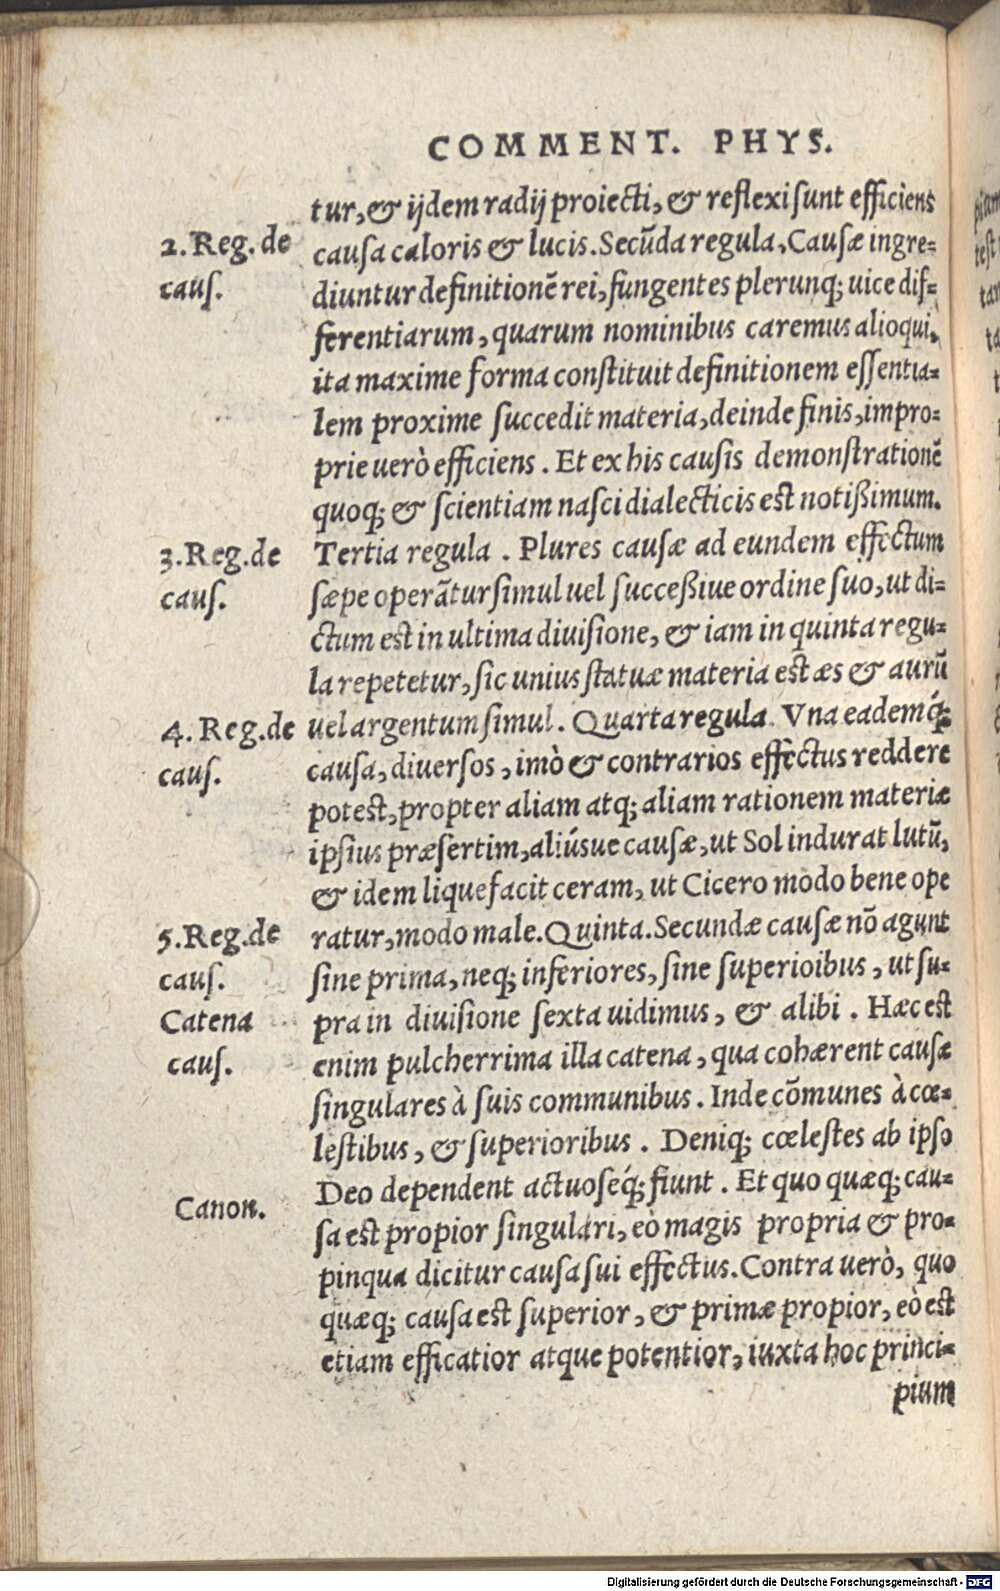 COMMENT. PHYS.
tur, & ijdem radij proiecti, & reflexi sunt efficiens
2. Reg. de
causa caloris & lucis. Secūda regula, Causæ ingre=
caus.
diuntur definitionē rei, fungentes plerunq; uice dif=
ferentiarum, quarum nominibus caremus alioqui,
ita maxime forma constituit definitionem essentia=
lem proxime succedit materia, deinde finis, impro=
prie uerò efficiens. Et ex his causis demonstrationē
quoq; & scientiam nasci dialecticis est notißimum.
3. Reg. de
Tertia regula. Plures causæ ad eundem effectum
caus.
sæpe operātur simul uel succeßiue ordine suo, ut di=
ctum est in ultima diuisione, & iam in quinta regu=
la repetetur, sic unius statuæ materia est æs & aurū
4. Reg. de
uel argentum simul. Quarta regula. Vna eademq́;
caus.
causa, diuersos, imò & contrarios effectus reddere
potest, propter aliam atq; aliam rationem materiæ
ipsius præsertim, aliúsue causæ, ut Sol indurat lutū,
& idem liquefacit ceram, ut Cicero modo bene ope
5. Reg. de
ratur, modo male. Quinta. Secundæ causæ nō agunt
caus.
sine prima, neq; inferiores, sine superioibus, ut su=
Catena
pra in diuisione sexta uidimus, & alibi. Hæc est
caus.
enim pulcherrima illa catena, qua cohærent causæ
singulares à suis communibus. Inde cōmunes à cœ=
lestibus, & superioribus. Deniq; cœlestes ab ipso
Deo dependent actuoseq́; fiunt. Et quo quæq; cau=
Canon.
sa est propior singulari, eò magis propria & pro=
pinqua dicitur causa sui effectus. Contra uerò, quo
quæq; causa est superior, & primæ propior, eò est
etiam efficatior atque potentior, iuxta hoc princi=
pium
Digitalisierung gefördert durch die Deutsche Forschungsgemeinschaft - DFG